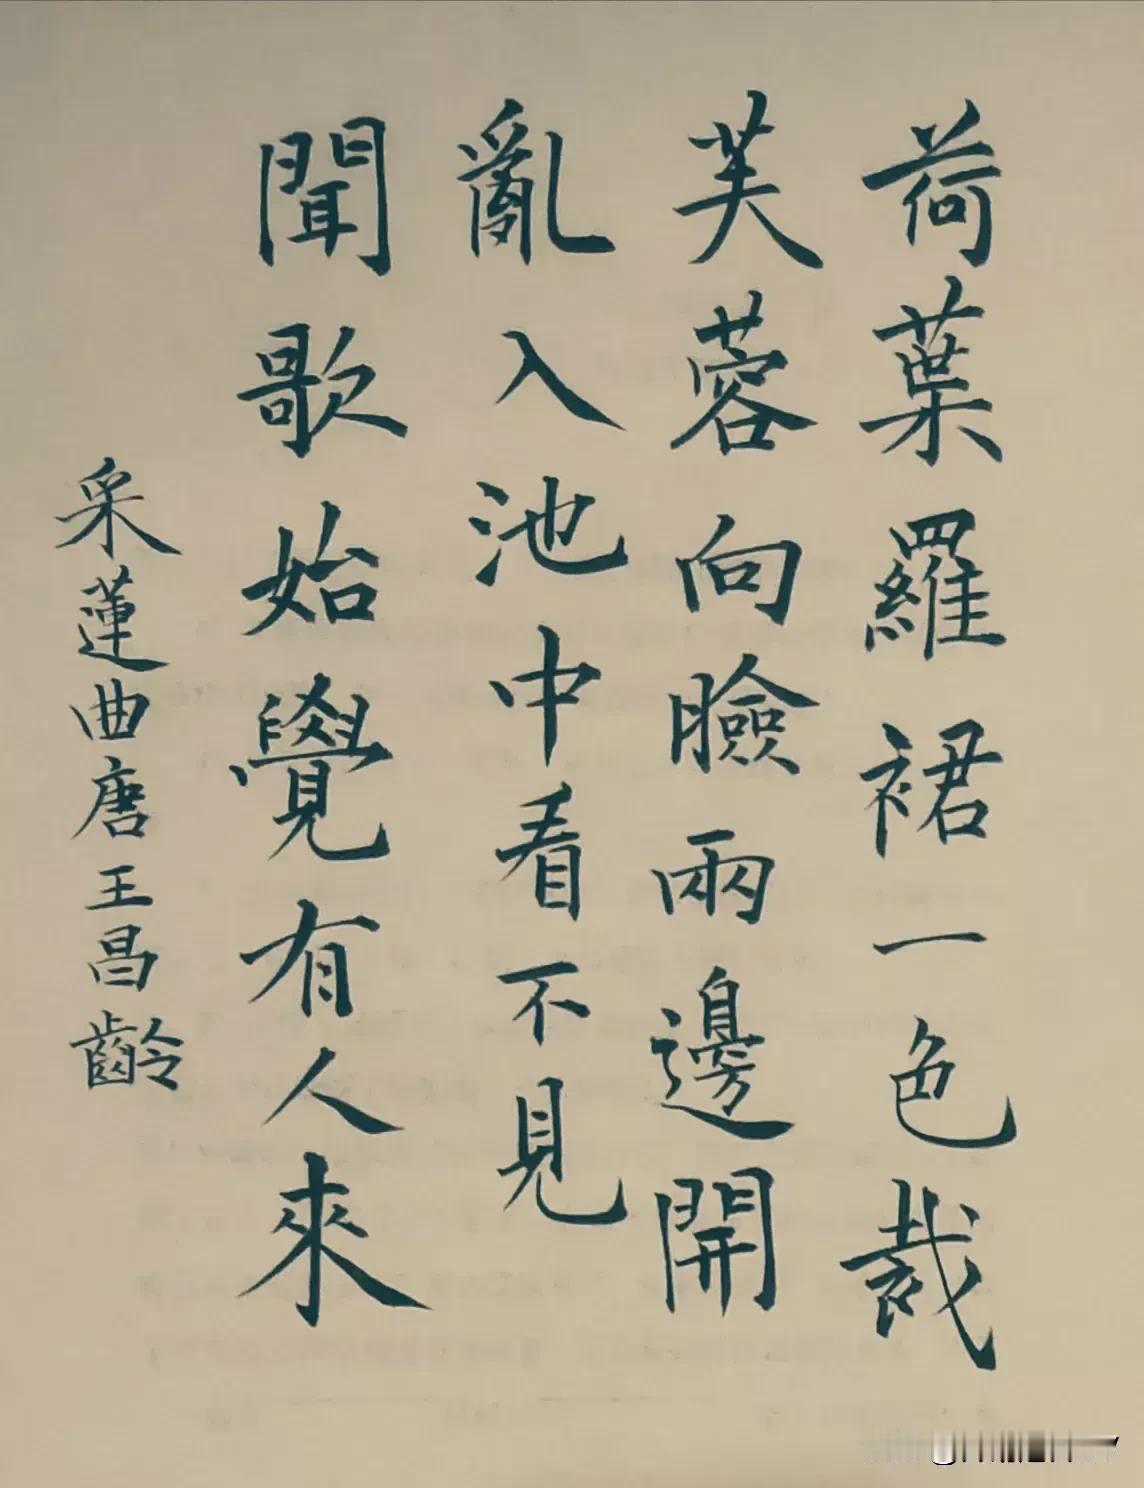 荷葉羅裙一色裁
芙蓉向臉兩邊開
亂入池中看不見
聞歌始覺有人來
采蓮曲唐王昌齡